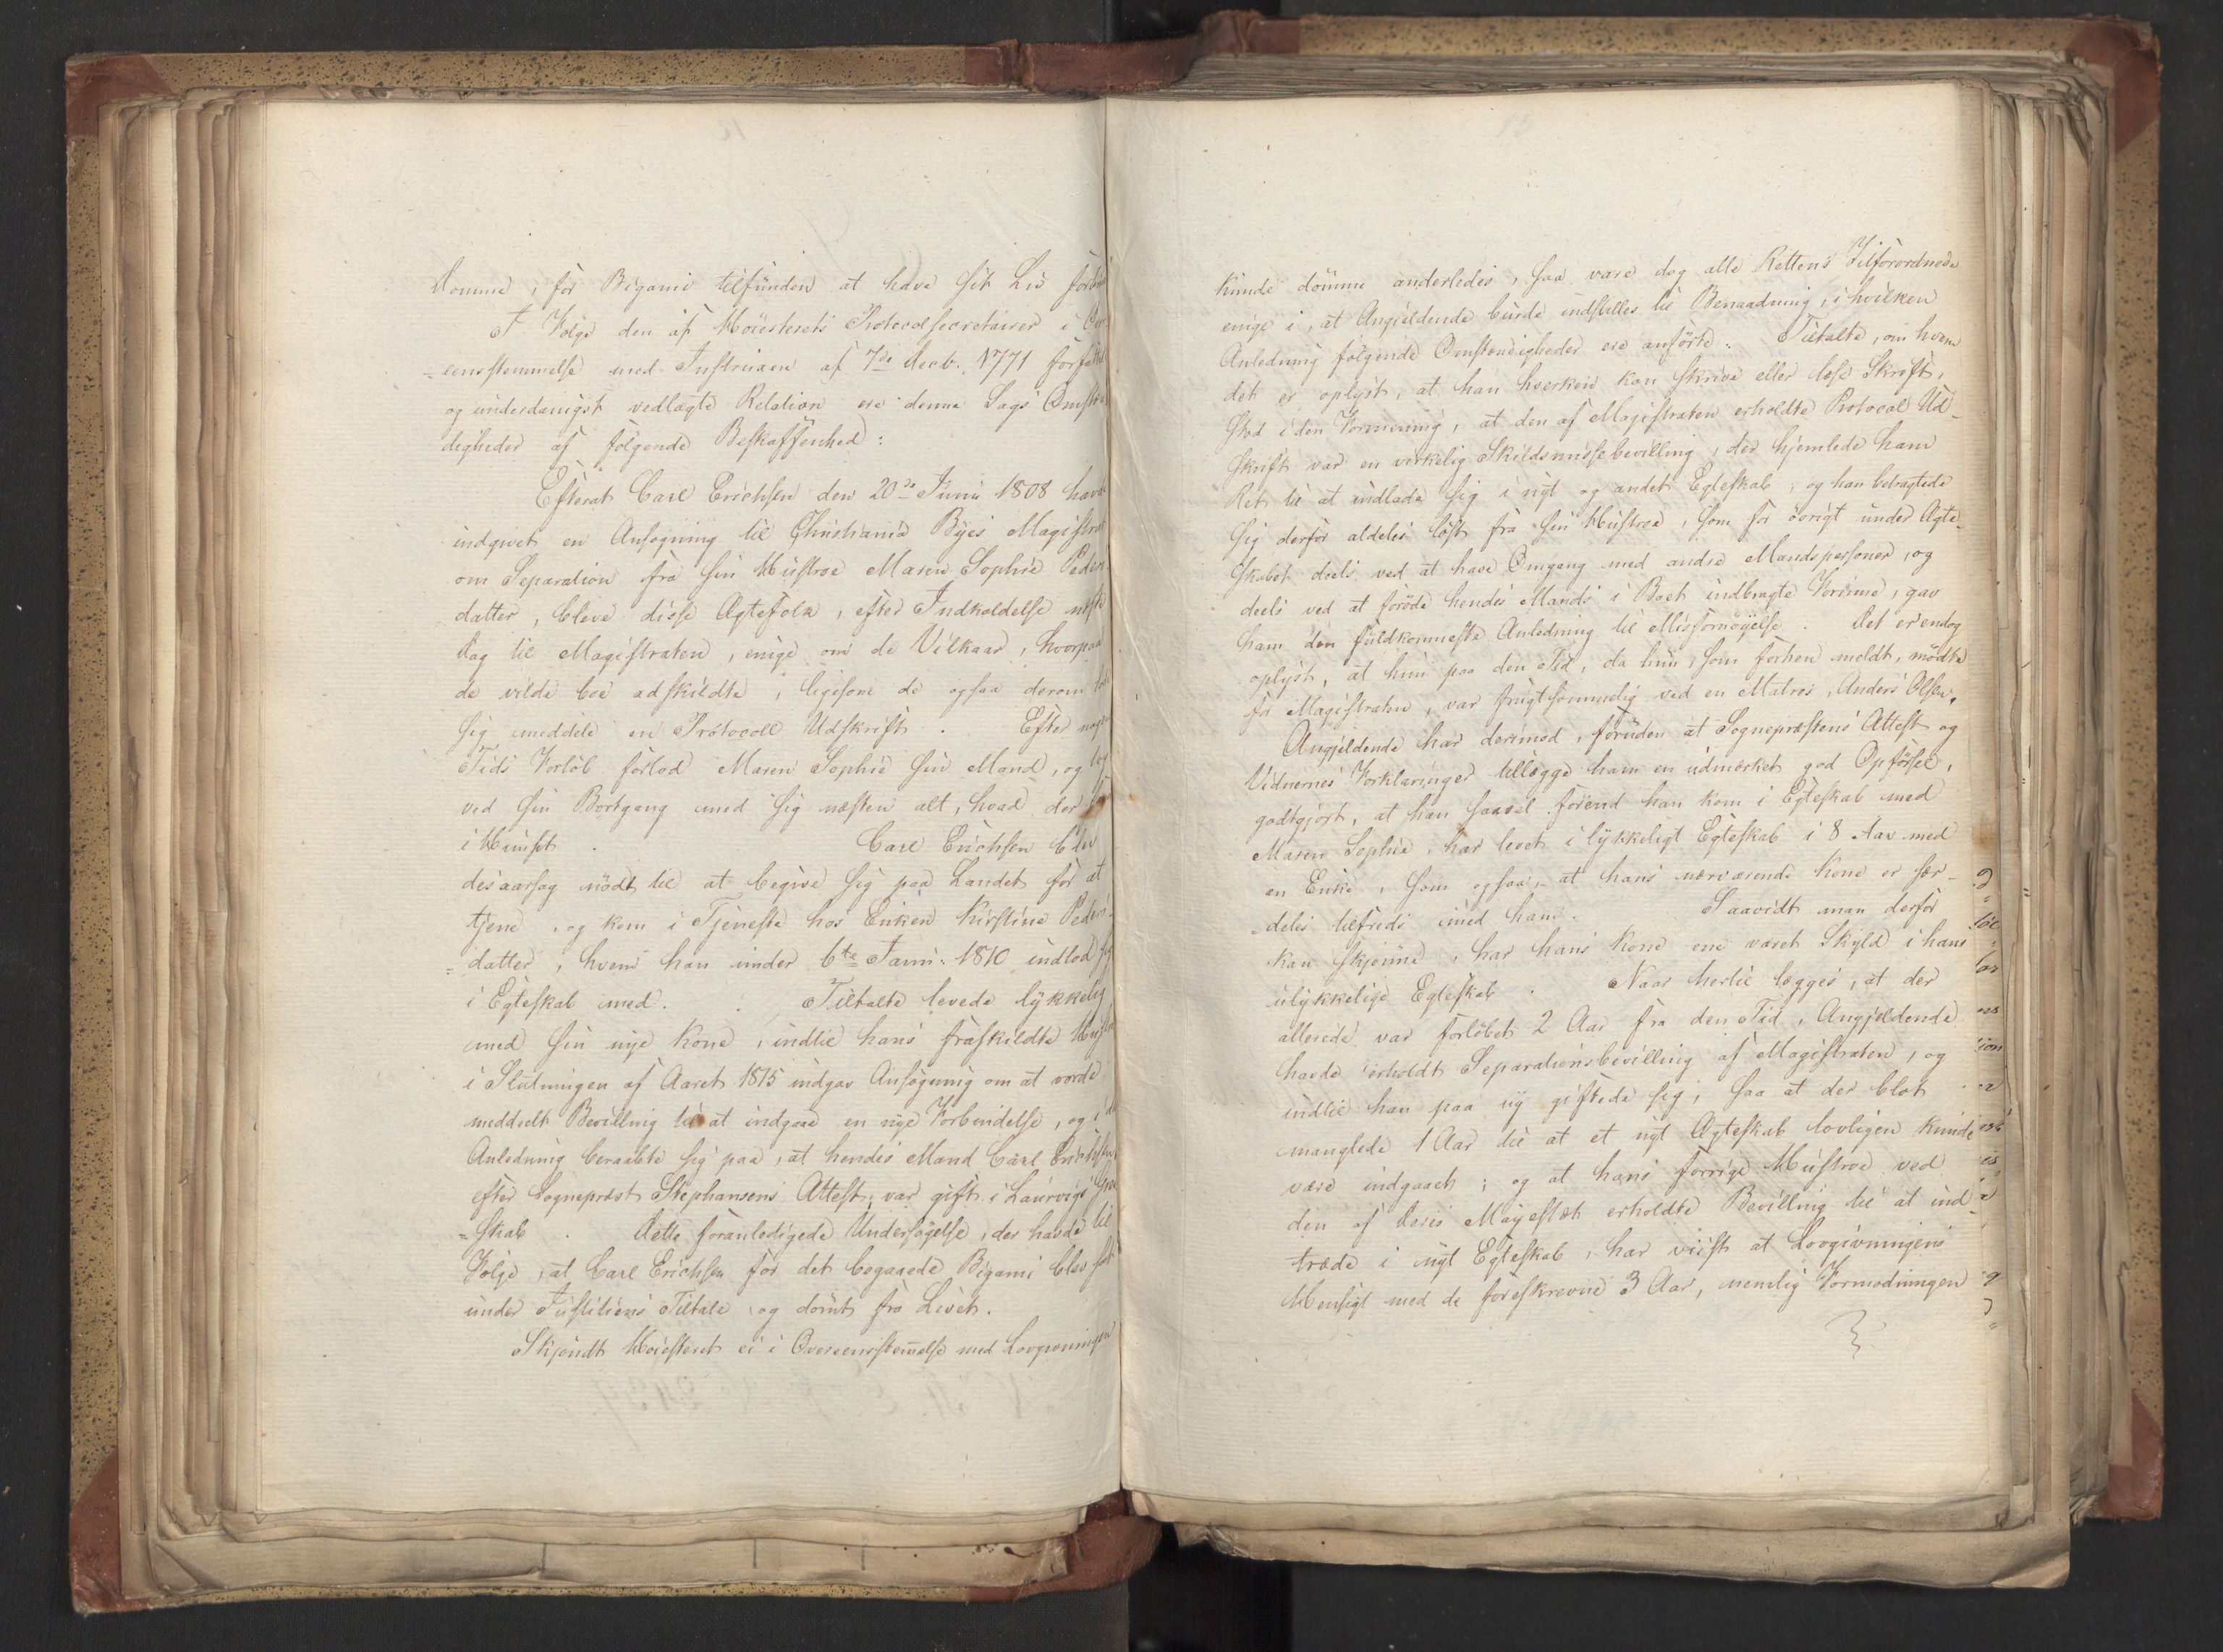 Domme, for Bigamie tilfunden at have sit Liv
I Følge den af Høiesterets Protocolsecretairer i
=eensstemmelse med Instruxen af 7de Decb. 1771
og underdanigst vedlagte Relation ere denne Sags
digheder af følgende Beskaffenhed:
Efterat Carl Erichsen den 20de Junii 1808 havde
indgivet en Ansøgning til Christiania Byes
om Separation fra sin Hustroe Maren Sophie Peders
datter, bleve disse Ægtefolk, efter Indkaldelse næste
Dag til Magistraten, enige om de Vilkaar, hvorpaa
de vilde boe adskildte, ligesom de ogsaa derom
sig meddele en Protocoll Udskrift. Efter
Tids Forløb forlod Maren Sophie sin Mand, og tog
ved sin Bortgang med sig næsten alt, hvad der
i Huuset. Carl Erichsen blev
desaarsag nødt til at begive sig paa Landet for at
tjene, og kom i Tjeneste hos Enken Kirstine Peders
=datter, hvem han under 6te Janu: 1810 indlod sig
i Egteskab med. Tiltalte levede lykkelig
med sin nye Kone, indtil hans fraskildte
i Slutningen af Aaret 1815 indgav Ansøgning om at vorde
meddeelt Bevilling til at indgaae en nye Forbindelse, og i
Anledning beraabte sig paa, at hendes Mand Carl Erichsen
efter Sognepræst Stephansens Attest, var gift i Laurvigs
=skab. Dette foranledigede Undersøgelse, der havde til
Følge, at Carl Erichsen for det begaaede Bigami blev sat
under Justitiens Tiltale og dømt fra Livet.
Skjøndt Høiesteret ei i Overeensstemmelse med Lovgivningen
kunde dømme anderledes, saa vare dog alle Rettens Tilforordnede
enige i, at Angjeldende burde indstilles til Benaadning, i hvilken
Anledning følgende Omstændigheder ere anførte: Tiltalte, om hvem
det er oplyst, at han hverken kan skrive eller læse Skrift,
stod i den Formening, at den af Magistraten erholdte Protocol Ud-
skrift var en virkelig Skildsmissebevilling, der hjemlede ham
Ret til at indlade sig i nyt og andet Egteskab, og han betragtede
sig derfor aldeles løst fra sin Hustroe, som for øvrigt under Ægte-
skabet deels ved at have Omgang med andre Mandspersoner, og
deels ved at forøde hendes Mands i Boet indbragte Formue, gav
ham den fuldkomneste Anledning til Misfornøyelse. Det er endog
oplyst, at hun paa den Tid, da hun, som forhen meldt, mødte
for Magistraten, var frugtsommelig ved en Matros, Anders Olsen.
Angjeldende har derimod, foruden at Sognepræstens Attest og
Vidnernes Forklaringer tillægge ham en udmærket god Opførsel,
godtgjort, at han saavel forend han kom i Egteskab med
Maren Sophie, har levet i lykkeligt Egteskab i 8 Aar med
en Enke, som ogsaa, at hans nærværende Kone er sær-
deles tilfreds med ham. Saavidt man derfor
kan skjønne, har hans Kone ene været Skyld i hans
ulykkelige Egteskab. Naar hertil lægges, at der
allerede var forløbet 2 Aar fra den Tid, Angjeldende
havde erholdt Separationsbevilling af Magistraten, og
indtil han paa ny giftede sig, saa at der blot
manglede 1 Aar til at et nyt Ægteskab lovligen kunde
være indgaaet; og at hans forrige Hustroe ved
den af Deres Majestæt erholdte Bevilling til at ind-
træde i nyt Egteskab, har viist at Lovgivningens
Hensigt med de foreskrevne 3 Aar, nemlig Formodningen